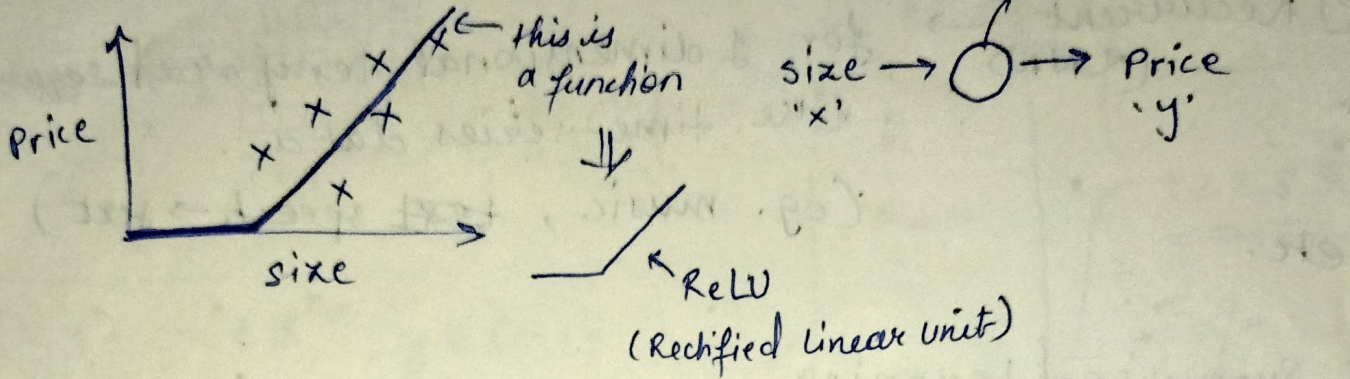 Price
size
this is
a function
ReLU
(Rectified Linear Unit)
size → Price
"x' 'y'